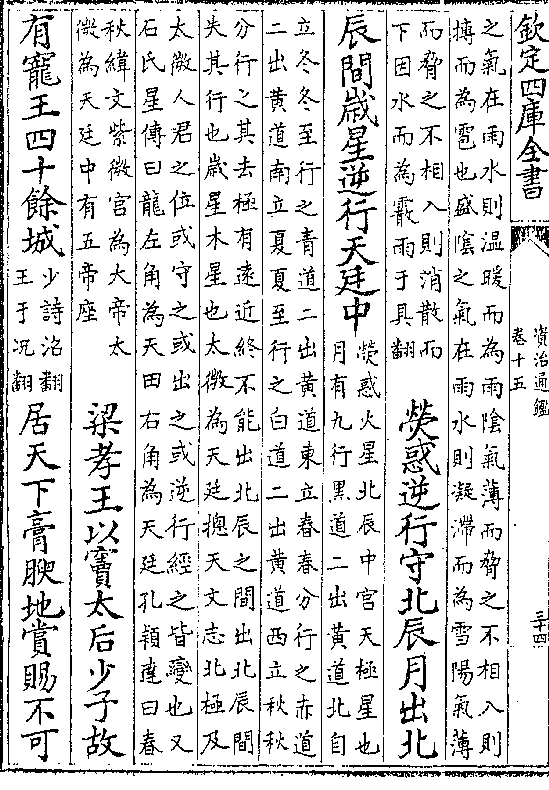 欽定四庫全書
資治通鑑
卷十五
三十四
之氣在雨水則温暖而為雨陰氣薄而脅之不相入則
摶而為雹也盛陰之氣在雨水則凝滯而為雪陽氣薄
而脅之不相入則消散而
下因水而為霰雨于具翻
熒惑逆行守北辰月出北
辰間歲星逆行天廷中
熒惑火星北辰中宮天極星也
月有九行黑道二出黄道北自
立冬冬至行之青道二出黄道東立春春分行之赤道
二出黄道南立夏夏至行之白道二出黄道西立秋秋
分行之其去極有遠近終不能出北辰之間出北辰間
失其行也歲星木星也太微為天廷摠天文志北極及
太微人君之位或守之或出之或逆行經之皆變也又
石氏星傳曰龍左角為天田右角為天廷孔穎達曰春
秋緯文紫微宮為大帝太
微為天廷中有五帝座
梁孝王以竇太后少子故
有寵王四十餘城
少詩沼翻
王于况翻
居天下膏腴地賞賜不可